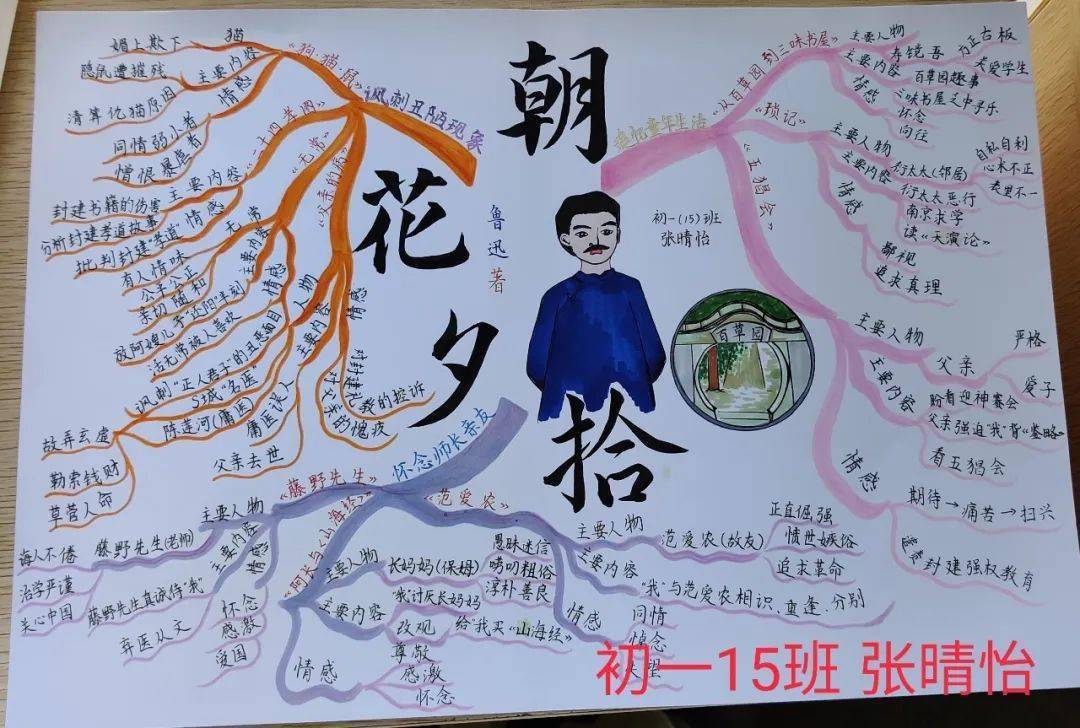 朝花夕拾
鲁迅著
初一(15)班
张晴怡
百草园
讽刺丑陋现象
《狗·猫·鼠》
猫
媚上欺下
主要内容
隐鼠遭摧残
清算仇猫原因
情感
同情弱小者
憎恨暴虐者
《二十四孝图》
主要内容
封建书籍的伤害
分析封建孝道故事
情感
批判封建"孝道"
《无常》
无常
有人情味
公平公正
亲切随和
主要内容
放阿嫂儿子"还阳"半刻
活无常被人喜欢
情感
讽刺"正人君子"的丑恶面目
《父亲的病》
主要人物
S城"名医"
陈莲河(庸医)
故弄玄虚
勒索钱财
草菅人命
主要内容
庸医误人
父亲去世
情感
对封建礼教的控诉
对父亲的愧疚
追忆童年生活
《从百草园到三味书屋》
主要人物
寿镜吾
方正古板
关爱学生
主要内容
百草园趣事
三味书屋之中寻乐
情感
怀念
向往
《琐记》
主要人物
衍太太(邻居)
自私自利
心术不正
表里不一
主要内容
衍太太恶行
南京求学
读《天演论》
情感
鄙视
追求真理
《五猖会》
主要人物
父亲
严格
爱子
主要内容
盼看迎神赛会
父亲强迫"我"背《鉴略》
看五猖会
情感
期待→痛苦→扫兴
谴责
封建强权教育
怀念师长亲友
《藤野先生》
主要人物
藤野先生(老师)
诲人不倦
治学严谨
关心中国
主要内容
藤野先生真诚待"我"
弃医从文
情感
怀念
感激
爱国
《阿长与《山海经》》
主要人物
长妈妈(保姆)
愚昧迷信
唠叨粗俗
淳朴善良
主要内容
"我"讨厌长妈妈
给"我"买《山海经》
情感
改观
尊敬
感激
怀念
《范爱农》
主要人物
范爱农(故友)
正直倔强
愤世嫉俗
追求革命
主要内容
"我"与范爱农相识、重逢、分别
情感
同情
悼念
失望
初一15班 张晴怡